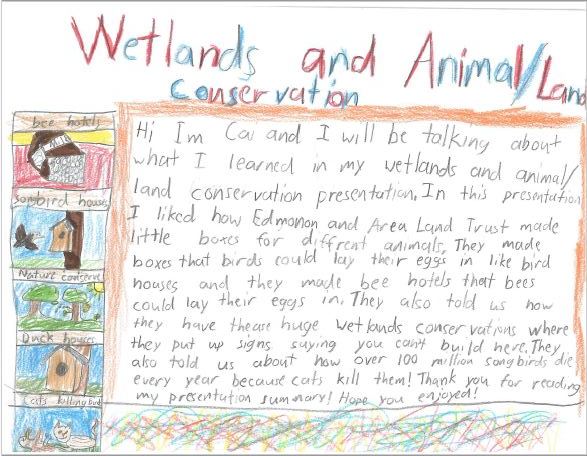 Wetlands and Animal/Land
Conservation
bee hotels
songbird houses
Nature conserve
Duck houses
Cats killing bird
Hi Im Cai and I will be talking about
what I learned in my wetlands and animal/
land conservation presentation. In this presentation
I liked how Edmonon and Area Land Trust made
little boxes for diffrent animals. They made
boxes that birds could lay their eggs in like bird
houses and they made bee hotels that bees
could lay their eggs in. They also told us how
they have thease huge wetlands conservations where
they put up signs saying you can't build here. They
also told us about how over 100 million songbirds die
every year because cats kill them! Thank you for reading
my presentation summary! Hope you enjoyed!